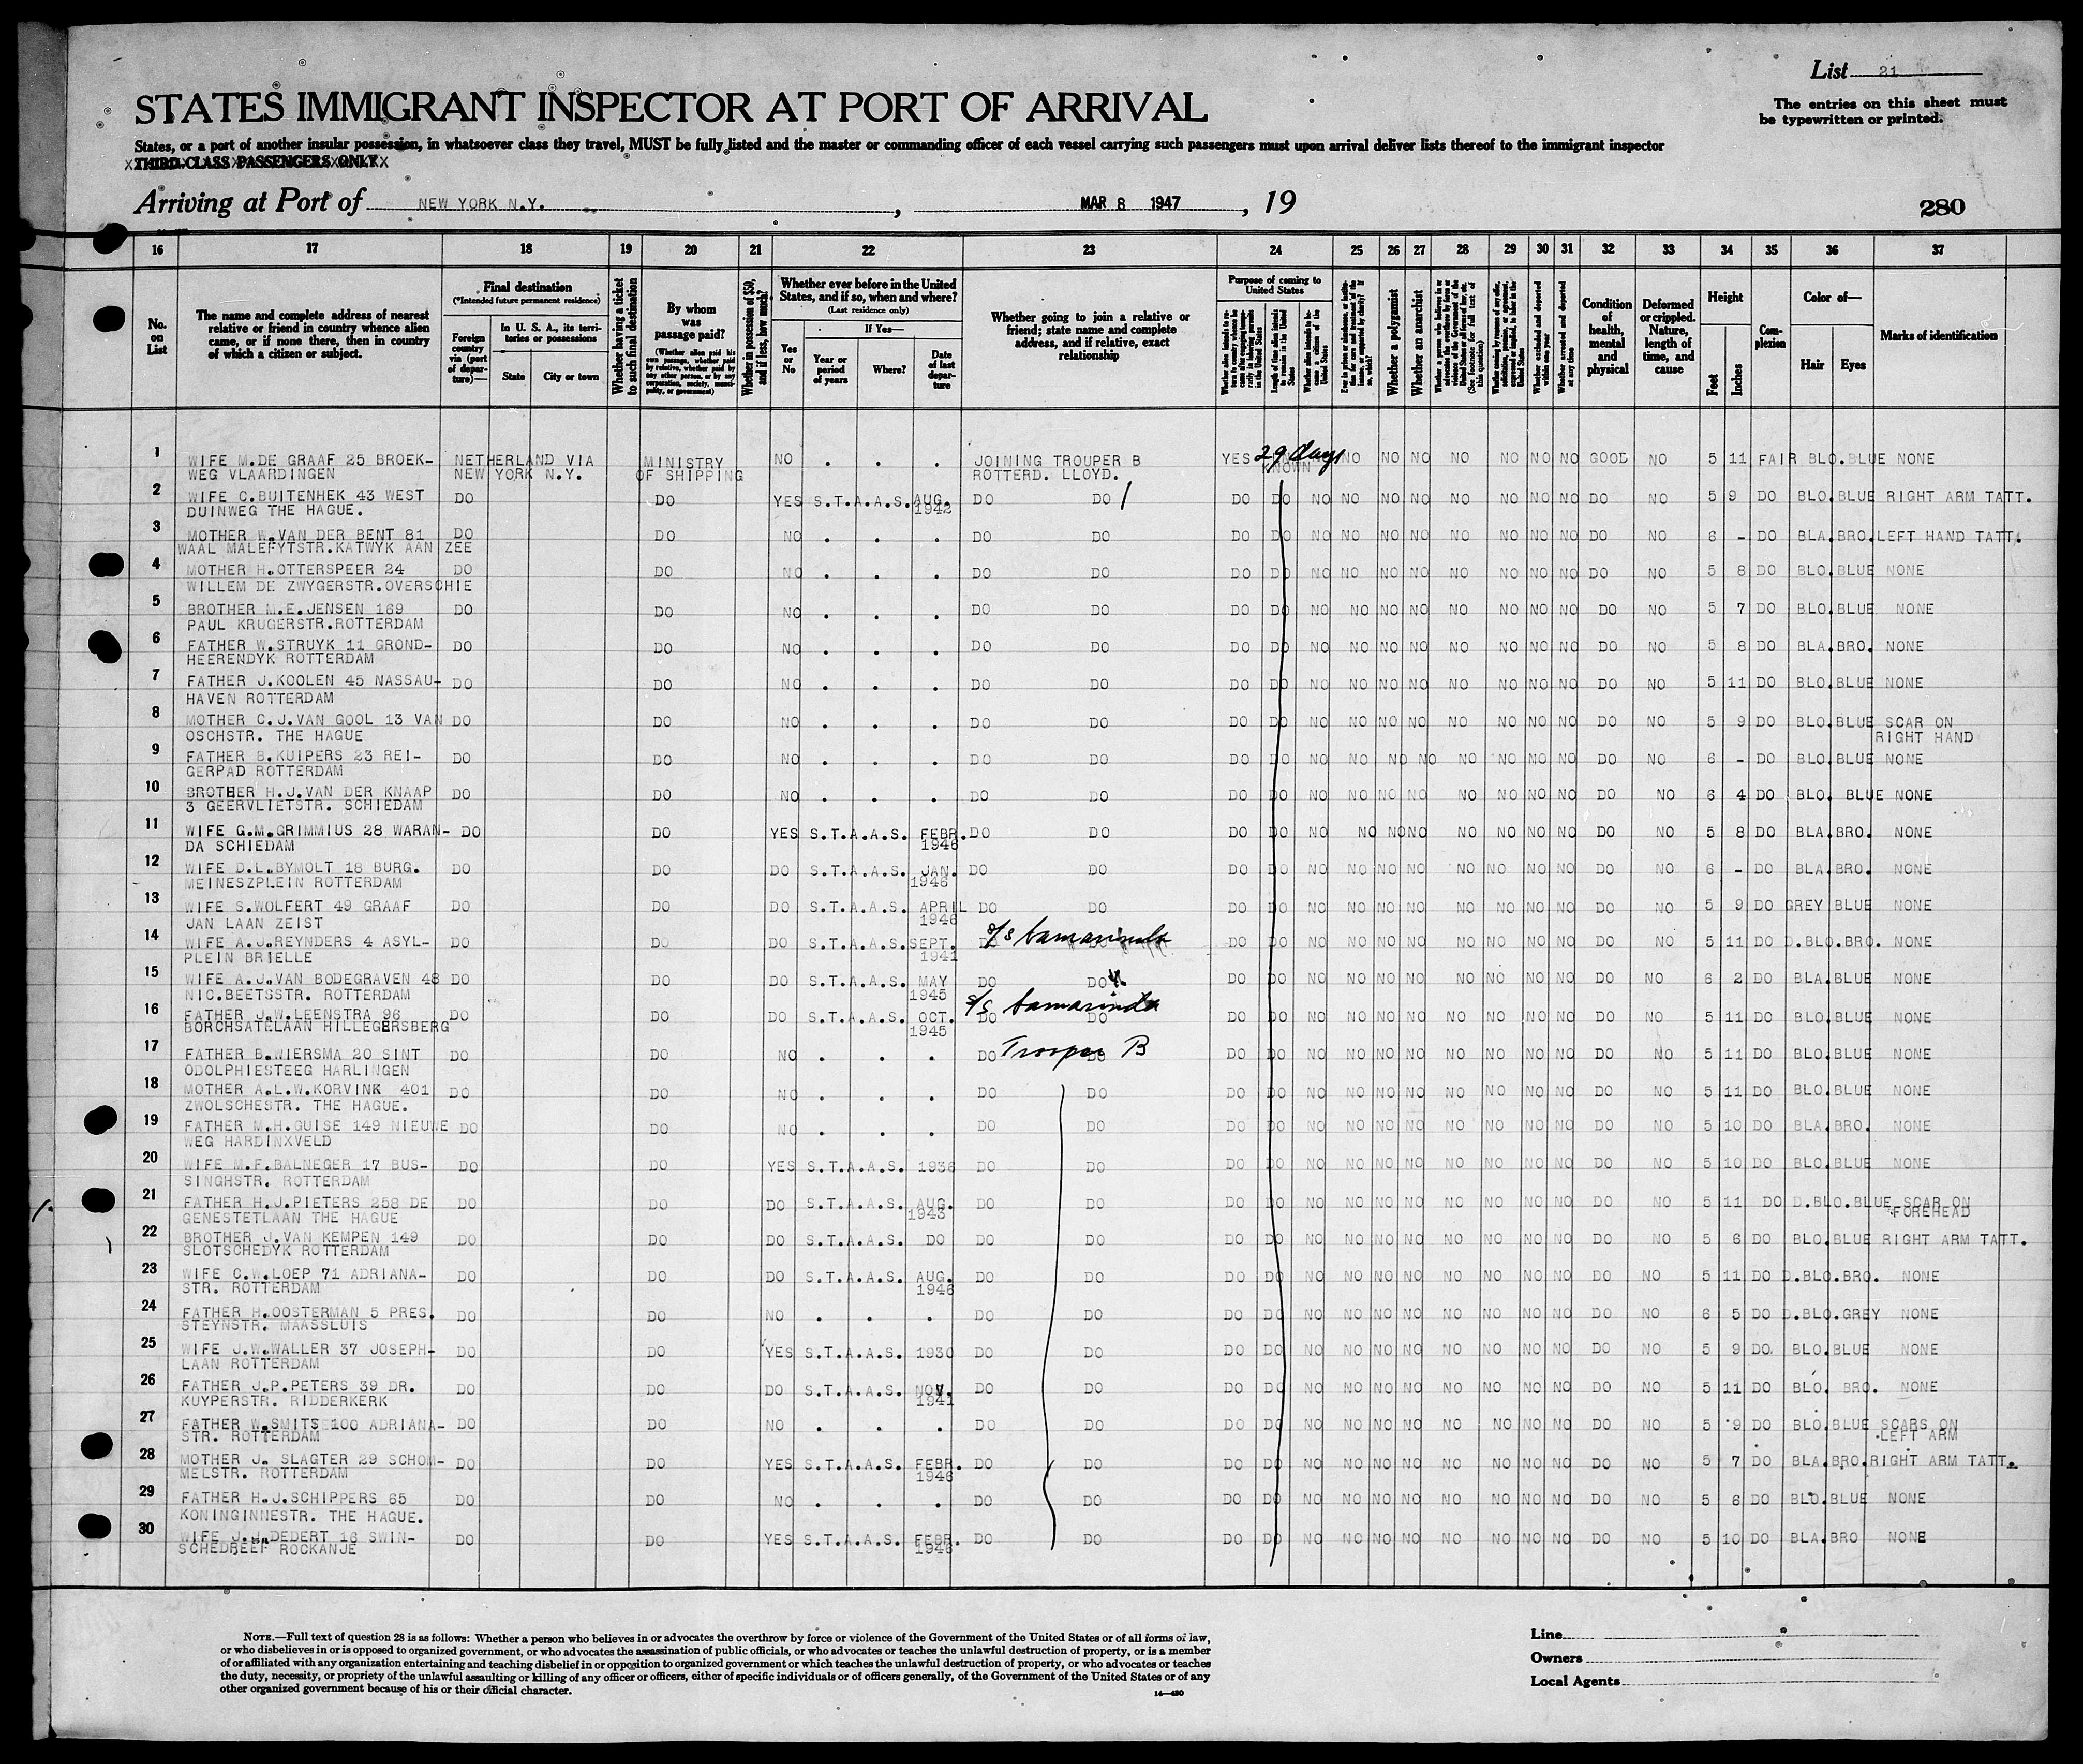 List 21
STATES IMMIGRANT INSPECTOR AT PORT OF ARRIVAL
The entries on this sheet must
be typewritten or printed.
States, or a port of another insular possession, in whatsoever class they travel, MUST be fully listed and the master or commanding officer of each vessel carrying such passengers must upon arrival deliver lists thereof to the immigrant inspector
THIRD-CLASS PASSENGERS ONLY
Arriving at Port of NEW YORK N.Y. , MAR 8 1947 , 19
280
16 17 18 19 20 21 22 23 24 25 26 27 28 29 30 31 32 33 34 35 36 37
No. on List
The name and complete address of nearest relative or friend in country whence alien came, or if none there, then in country of which a citizen or subject.
Final destination
(*Intended future permanent residence)
Foreign country via (port of departure)—
In U. S. A., its territories or possessions
State
City or town
Whether having a ticket to such final destination
By whom was passage paid?
(Whether alien paid his own passage, whether paid by relative, whether paid by any other person, or by any corporation, society, municipality, or government)
Whether in possession of $50, and if less, how much?
Whether ever before in the United States, and if so, when and where?
(Last residence only)
If Yes—
Yes or No
Year or period of years
Where?
Date of last departure
Whether going to join a relative or friend; state name and complete address, and if relative, exact relationship
Purpose of coming to United States
Length of time alien intends to remain in the United States
Whether a polygamist
Whether an anarchist
Condition of health, mental and physical
Deformed or crippled. Nature, length of time, and cause
Height
Feet
Inches
Complexion
Color of—
Hair
Eyes
Marks of identification
1 WIFE M.DE GRAAF 25 BROEK- NETHERLAND VIA MINISTRY NO . . . JOINING TROUPER B YES 29 days NO NO NO NO NO NO NO GOOD NO 5 11 FAIR BLO.BLUE NONE
WEG VLAARDINGEN NEW YORK N.Y. OF SHIPPING ROTTERD. LLOYD. KNOWN
2 WIFE C.BUITENHEK 43 WEST DO DO YES S.T.A.A.S. AUG. DO DO DO DO NO NO NO NO NO NO NO NO DO NO 5 9 DO BLO.BLUE RIGHT ARM TATT.
DUINWEG THE HAGUE. 1942
3 MOTHER W.VAN DER BENT 81 DO DO NO . . . DO DO DO DO NO NO NO NO NO NO NO NO DO NO 6 - DO BLA.BRO. LEFT HAND TATT.
WAAL MALEFYTSTR.KATWYK AAN ZEE
4 MOTHER H.OTTERSPEER 24 DO DO NO . . . DO DO DO DO NO NO NO NO NO NO NO NO DO NO 5 8 DO BLO.BLUE NONE
WILLEM DE ZWYGERSTR.OVERSCHIE
5 BROTHER M.E.JENSEN 169 DO DO NO . . . DO DO DO DO NO NO NO NO NO NO NO NO DO NO 5 7 DO BLO.BLUE NONE
PAUL KRUGERSTR.ROTTERDAM
6 FATHER W.STRUYK 11 GROND- DO DO NO . . . DO DO DO DO NO NO NO NO NO NO NO NO DO NO 5 8 DO BLA.BRO. NONE
HEERENDYK ROTTERDAM
7 FATHER J.KOOLEN 45 NASSAU- DO DO NO . . . DO DO DO DO NO NO NO NO NO NO NO NO DO NO 5 11 DO BLO.BLUE NONE
HAVEN ROTTERDAM
8 MOTHER C.J.VAN GOOL 13 VAN DO DO NO . . . DO DO DO DO NO NO NO NO NO NO NO NO DO NO 5 9 DO BLO.BLUE SCAR ON
OSCHSTR. THE HAGUE RIGHT HAND
9 FATHER B.KUIPERS 23 REI- DO DO NO . . . DO DO DO DO NO NO NO NO NO NO NO NO DO NO 6 - DO BLO.BLUE NONE
GERPAD ROTTERDAM
10 BROTHER H.J.VAN DER KNAAP DO DO NO . . . DO DO DO DO NO NO NO NO NO NO NO NO DO NO 6 4 DO BLO. BLUE NONE
3 GEERVLIETSTR. SCHIEDAM
11 WIFE G.M.GRIMMIUS 28 WARAN- DO DO YES S.T.A.A.S. FEBR. DO DO DO DO NO NO NO NO NO NO NO NO DO NO 5 8 DO BLA.BRO. NONE
DA SCHIEDAM 1946
12 WIFE D.L.BYMOLT 18 BURG. DO DO DO S.T.A.A.S. JAN. DO DO DO DO NO NO NO NO NO NO NO NO DO NO 6 - DO BLA.BRO. NONE
MEINESZPLEIN ROTTERDAM 1946
13 WIFE S.WOLFERT 49 GRAAF DO DO DO S.T.A.A.S. APRIL DO DO DO DO NO NO NO NO NO NO NO NO DO NO 5 9 DO GREY BLUE NONE
JAN LAAN ZEIST 1946
14 WIFE A.J.REYNDERS 4 ASYL- DO DO DO S.T.A.A.S. SEPT. s/s tamarinda DO DO NO NO NO NO NO NO NO NO DO NO 5 11 DO D.BLO.BRO. NONE
PLEIN BRIELLE 1941
15 WIFE A.J.VAN BODEGRAVEN 48 DO DO DO S.T.A.A.S. MAY DO DO DO DO NO NO NO NO NO NO NO NO DO NO 6 2 DO BLA.BLUE NONE
NIC.BEETSSTR. ROTTERDAM 1945
16 FATHER J.W.LEENSTRA 96 DO DO DO S.T.A.A.S. OCT. s/s tamarinda DO DO DO DO NO NO NO NO NO NO NO NO DO NO 5 11 DO BLO.BLUE NONE
BORCHSATELAAN HILLEGERSBERG 1945
17 FATHER B.WIERSMA 20 SINT DO DO NO . . . DO Trooper B DO DO DO NO NO NO NO NO NO NO NO DO NO 5 11 DO BLO.BLUE NONE
ODOLPHIESTEEG HARLINGEN
18 MOTHER A.L.W.KORVINK 401 DO DO NO . . . DO DO DO DO NO NO NO NO NO NO NO NO DO NO 5 11 DO BLO.BLUE NONE
ZWOLSCHESTR. THE HAGUE.
19 FATHER M.H.GUISE 149 NIEUWE DO DO NO . . . DO DO DO DO NO NO NO NO NO NO NO NO DO NO 5 10 DO BLA.BRO. NONE
WEG HARDINXVELD
20 WIFE M.F.BALNEGER 17 BUS- DO DO YES S.T.A.A.S. 1936 DO DO DO DO NO NO NO NO NO NO NO NO DO NO 5 10 DO BLO.BLUE NONE
SINGHSTR. ROTTERDAM
21 FATHER H.J.PIETERS 258 DE DO DO DO S.T.A.A.S. AUG. DO DO DO DO NO NO NO NO NO NO NO NO DO NO 5 11 DO D.BLO.BLUE SCAR ON
GENESTETLAAN THE HAGUE 1943 FOREHEAD
22 BROTHER J.VAN KEMPEN 149 DO DO DO S.T.A.A.S. DO DO DO DO DO NO NO NO NO NO NO NO NO DO NO 5 6 DO BLO.BLUE RIGHT ARM TATT.
SLOTSCHEDYK ROTTERDAM
23 WIFE C.W.LOEP 71 ADRIANA- DO DO DO S.T.A.A.S. AUG. DO DO DO DO NO NO NO NO NO NO NO NO DO NO 5 11 DO D.BLO.BRO. NONE
STR. ROTTERDAM 1946
24 FATHER H.OOSTERMAN 5 PRES. DO DO NO . . . DO DO DO DO NO NO NO NO NO NO NO NO DO NO 6 5 DO D.BLO.GREY NONE
STEYNSTR. MAASSLUIS
25 WIFE J.W.WALLER 37 JOSEPH- DO DO YES S.T.A.A.S. 1930 DO DO DO DO NO NO NO NO NO NO NO NO DO NO 5 9 DO BLO.BLUE NONE
LAAN ROTTERDAM
26 FATHER J.P.PETERS 39 DR. DO DO DO S.T.A.A.S. NOV. DO DO DO DO NO NO NO NO NO NO NO NO DO NO 5 11 DO BLO. BRO. NONE
KUYPERSTR. RIDDERKERK 1941
27 FATHER W.SMITS 100 ADRIANA- DO DO NO . . . DO DO DO DO NO NO NO NO NO NO NO NO DO NO 5 9 DO BLO.BLUE SCARS ON
STR. ROTTERDAM LEFT ARM
28 MOTHER J. SLAGTER 29 SCHOM- DO DO YES S.T.A.A.S. FEBR. DO DO DO DO NO NO NO NO NO NO NO NO DO NO 5 7 DO BLA.BRO. RIGHT ARM TATT.
MELSTR. ROTTERDAM 1946
29 FATHER H.J.SCHIPPERS 65 DO DO NO . . . DO DO DO DO NO NO NO NO NO NO NO NO DO NO 5 6 DO BLO.BLUE NONE
KONINGINNESTR. THE HAGUE.
30 WIFE J.J.DEDERT 16 SWIN- DO DO YES S.T.A.A.S. FEBR. DO DO DO DO NO NO NO NO NO NO NO NO DO NO 5 10 DO BLA.BRO NONE
SCHEDREEF ROCKANJE 1946
NOTE.—Full text of question 28 is as follows: Whether a person who believes in or advocates the overthrow by force or violence of the Government of the United States or of all forms of law,
or who disbelieves in or is opposed to organized government, or who advocates the assassination of public officials, or who advocates or teaches the unlawful destruction of property, or is a member
of or affiliated with any organization entertaining and teaching disbelief in or opposition to organized government or which teaches the unlawful destruction of property, or who advocates or teaches
the duty, necessity, or propriety of the unlawful assaulting or killing of any officer or officers, either of specific individuals or of officers generally, of the Government of the United States or of any
other organized government because of his or their official character.
14—430
Line
Owners
Local Agents